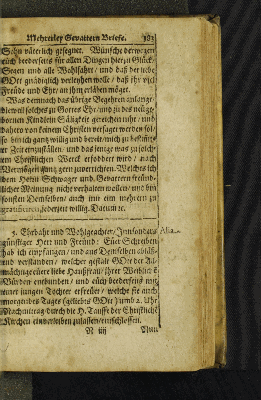 Mehrerley Gevattern Briefe. 183
Sohn väterlich gesegnet. Wünsche derwegen
euch beederseits für allen Dingen hierzu Glück/
Segen und alle Wohlfahrt/ und daß der liebe
GOtt gnädiglich verleyhen wolle/ daß ihr viel
Freude und Ehr/ an ihm erläben möget.
Was demnach das übrige Begehren anlanget/
dieweil solches zu Gottes Ehr/ und zu des neuge-
bornen Kindlein Säligkeit gereichen
dahero von keinem Christen versaget werden sol/
so bin ich ganz willig und bereit/ mich zu bestimm-
ter Zeit einzustellen/ und das jenige was zu solch-
em Christlichen Werck erfodert wird/ nach
Vermögen zu verrichten. Welches ich
dem Herrn Schwager und Gevattern freund-
licher Meinung nicht verhalten wollen/ und bin
sonsten Demselben/ auch mit ein mehrern zu
gratificiren/ jederzeit willig. Datum ꝛc.
3. Ehrbahr und Wohlgeachter/ Insonders
günstiger Herr und Freund: Euer Schreiben
hab ich empfangen/ und aus Demselben abläs-
und verstanden/ welcher gestalt GOtt der All-
mächtige euere liebe Hausfrau/ ihrer Weiblichen
Bürden entbunden/ und euch beederseits mit
einer jungen Tochter erfreuet/ welche sie auch
morgendes Tages (geliebts GOtt) umb 2. Uhr
Nachmittag durch die H. Tauffe der Christlichen
Kirchen einverleiben zu lassen/ entschlossen.
N iiij